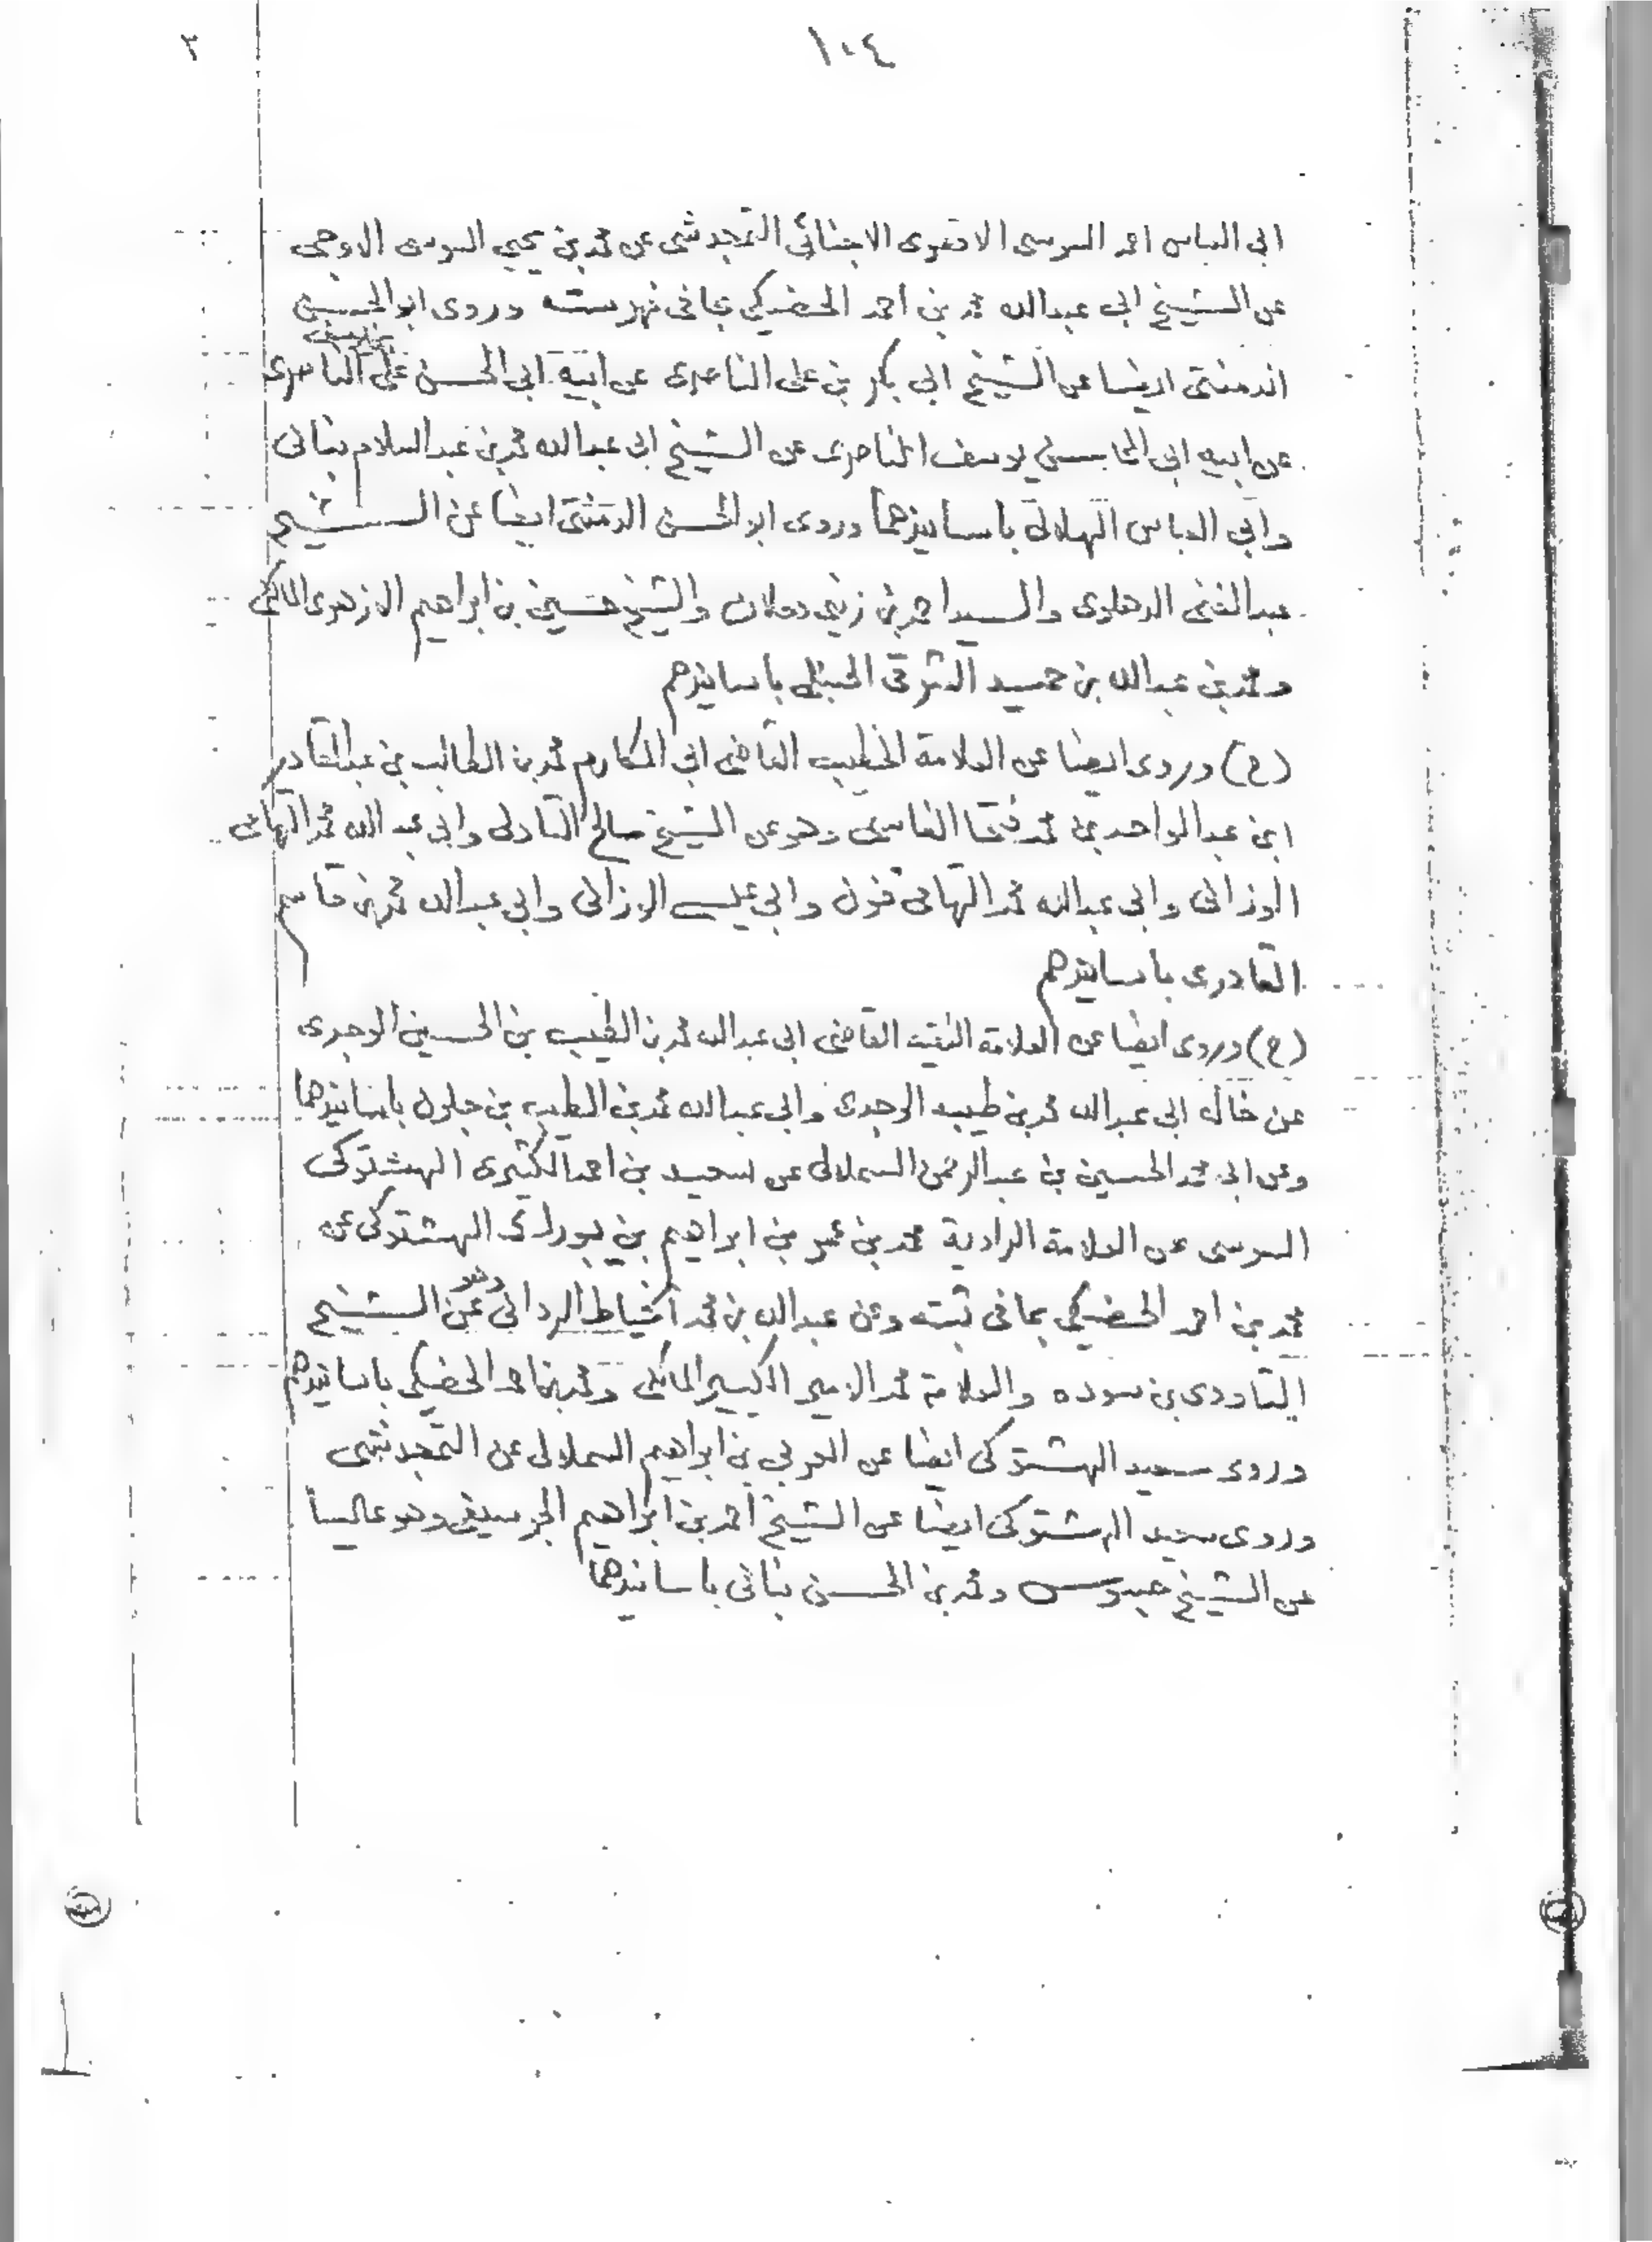 ١٠٤
٣
ابى العباس احمد السوسى الادغوى الاجنائى التمجدشتى عن محمد بن يحيى السوسى الاوجى
عن الشيخ ابى عبدالله محمد بن احمد الحضيكي بمافى فهرسته وروى ابوالحسن
الدمنتى ايضا عن الشيخ ابى بكر بن على الناصرى عن ابيه ابى الحسن على الناصرى
بن يوسف
عن ابيه ابى المحاسن يوسف الناصرى عن الشيخ ابى عبدالله محمد بن عبدالسلام بنانى
وابى العباس الهلالى باسانيدهما وروى ابوالحسن الدمنتى ايضا عن الشيخ
عبدالغنى الدهلوى والسيد احمد بن زينى دحلان والشيخ حسين بن ابراهيم الازهرى المالكى
ومحمد بن عبدالله بن حميد الشرقى الحنبلى باسانيدهم
(ح) وروى ايضا عن العلامة الخطيب القاضى ابى المكارم محمد بن الطالب بن عبدالقادر
ابن عبدالواحد بن محمد فتحا الفاسى وهو عن الشيخ صالح التادلى وابى عبدالله محمد التهامى
الوزانى وابى عبدالله محمد التهامى قنون وابى عيسى الوزانى وابى عبدالله محمد بن قاسم
القادرى باسانيدهم
(ح) وروى ايضا عن العلامة الثقة القاضى ابى عبدالله محمد بن الطيب بن الحسين الوجدى
عن خاله ابى عبدالله محمد بن طيبه الوجدى وابى عبدالله محمد بن الطيب بن جلون باسانيدهما
وعن ابى محمد الحسين بن عبدالرحمن السملالى عن سعيد بن احمد الكثيرى الهشتوكى
السوسى عن العلامة الراوية محمد بن عمر بن ابراهيم بن بورك الهشتوكى عن
محمد بن احمد الحضيكي بمافى ثبته وعن عبدالله بن محمد اكشياط الردانى وهو عن الشيخ
التاودى بن سوده والعلامة محمد الامير الكبير المالكى ومحمد بن احمد الحضيكي باسانيدهم
وروى سعيد الهشتوكى ايضا عن العربى بن ابراهيم السملالى عن التمجدشتى
وروى سعيد الهشتوكى ايضا عن الشيخ احمد بن ابراهيم الجرسيفى وهو عاليا
عن الشيخ جسوس ومحمد بن الحسن بنانى باسانيدهما